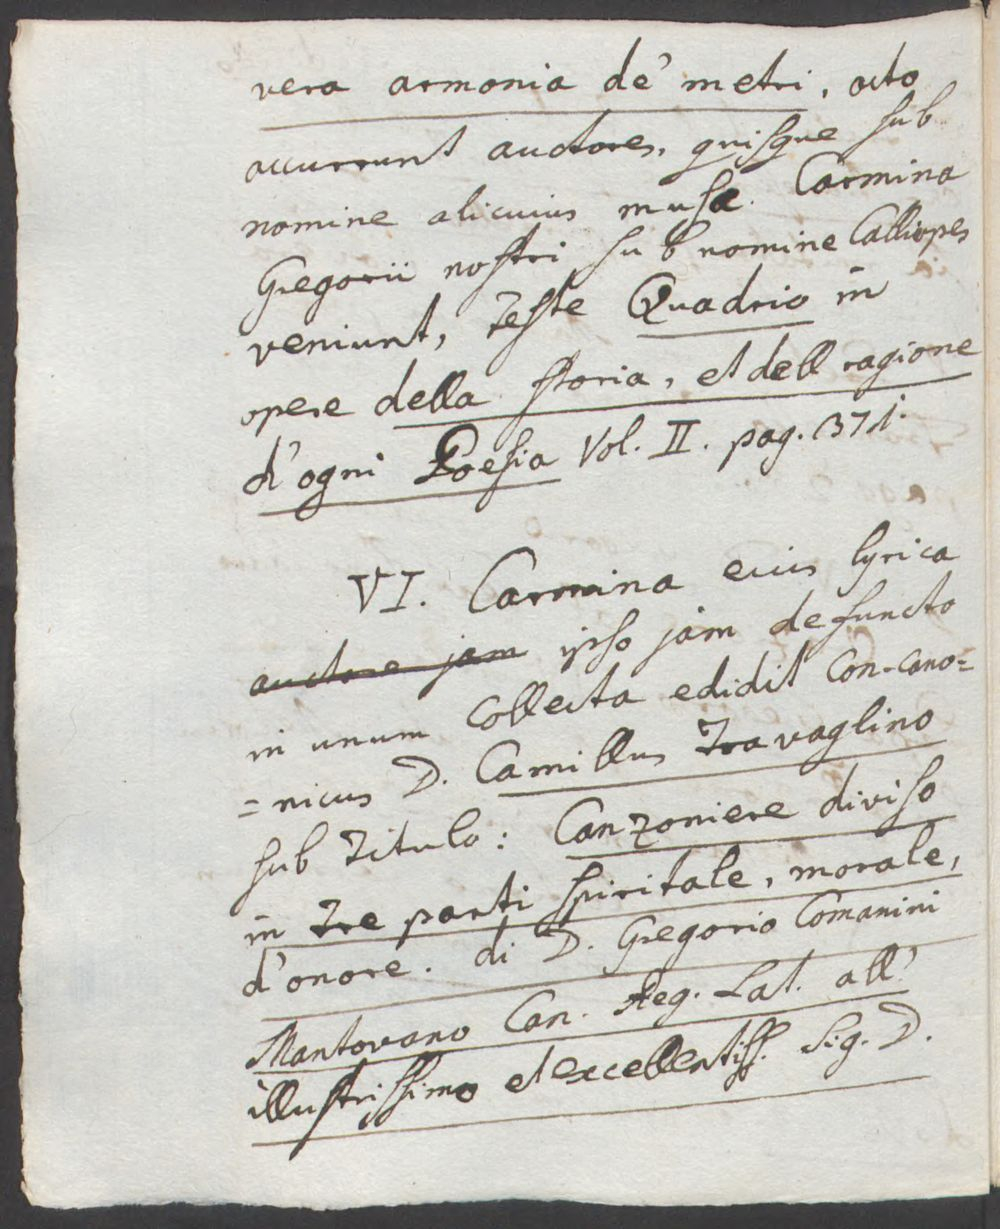 vera armonia de' metri, octo
occurrunt auctores, quisque sub
nomine alicuius musæ. Carmina
Gregorii nostri sub nomine Calliopes
veniunt, teste Quadrio in
opere della storia, et dell ragione
d'ogni Poesia Vol. II. pag. 371.
VI. Carmina eius lyrica
auctore jam ipso jam defuncto
in unum collecta edidit Con-cano=
=nicus D. Camillus Travaglino
sub titulo: Canzoniere diviso
in tre parti spiritale, morale,
d'onore. di D. Gregorio Comanini
Mantovano Can. Reg. Lat. all'
illustrissimo et excellentiss. Sig. D.